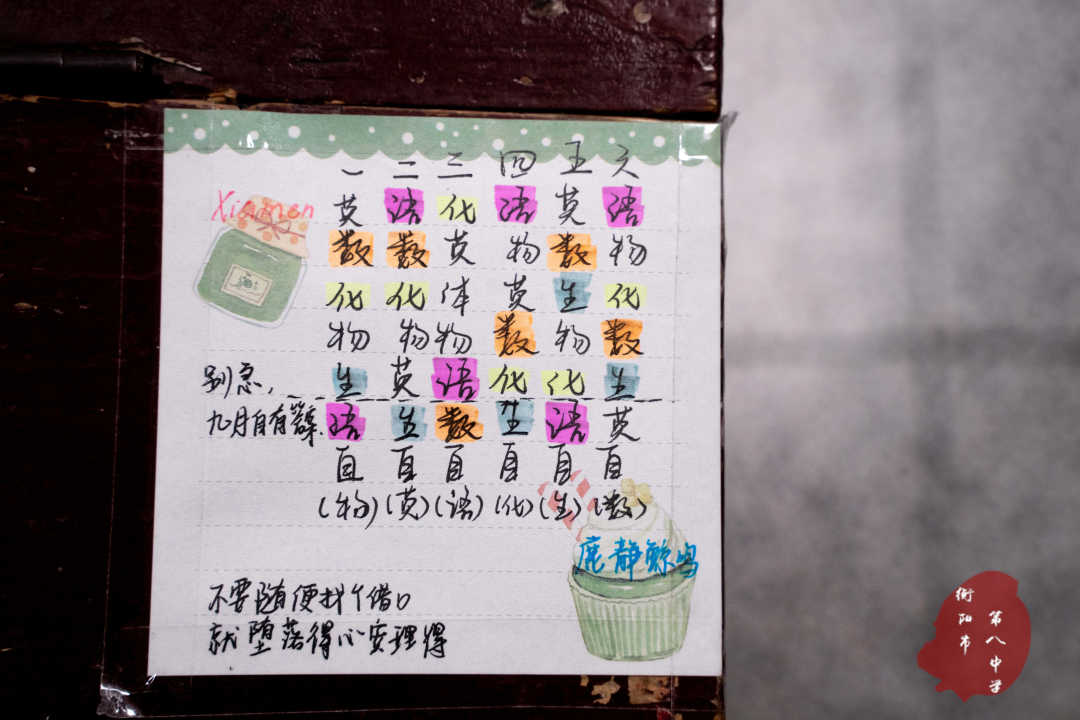 一 二 三 四 五 六
Xiamen
英 语 化 语 英 语
数 数 英 物 数 物
化 化 体 英 生 化
物 物 物 数 物 数
别急,
生 英 语 化 化 生
九月自有答案.
语 生 数 生 语 英
自 自 自 自 自 自
(物) (英) (语) (化) (生) (数)
鹿静鲸鸣
不要随便找个借口
就堕落得心安理得
衡阳市
第八中学